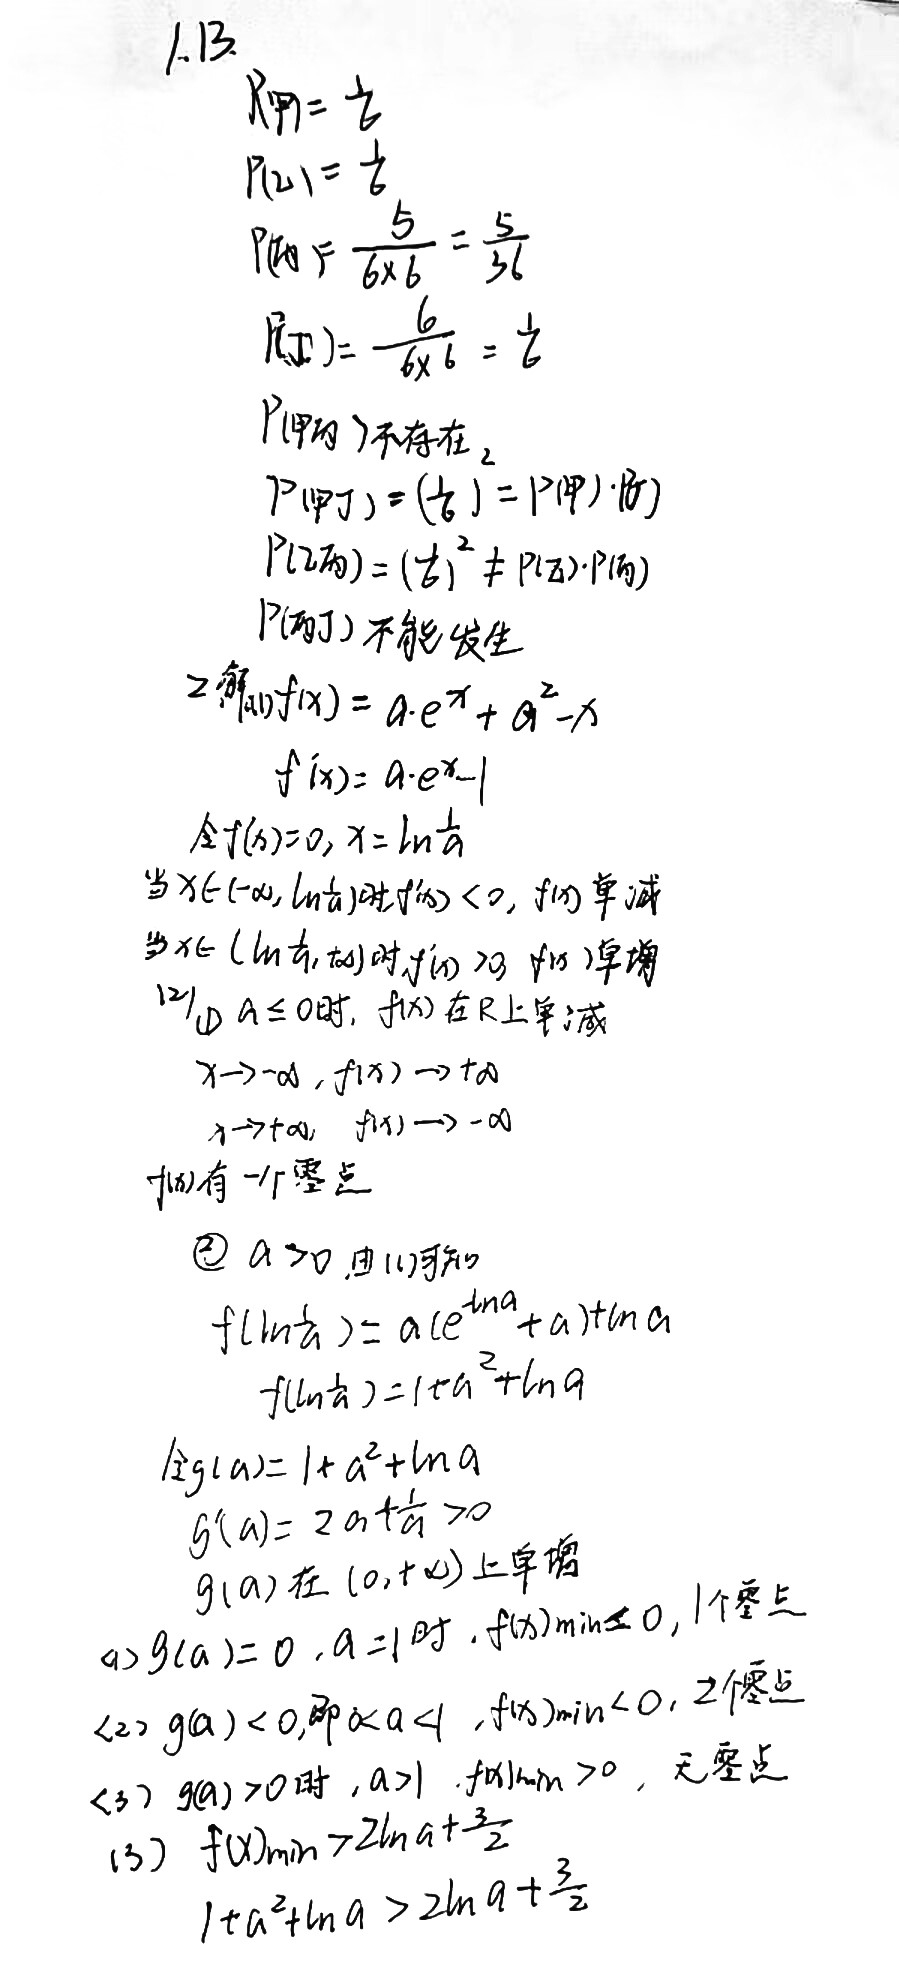 1. B.
P(甲)=1/6
P(乙)=1/6
P(丙)=5/(6×6)=5/36
P(丁)=6/(6×6)=1/6
P(甲丙)不存在
P(甲丁)=(1/6)²=P(甲)·P(丁)
P(乙丙)=(1/6)²≠P(乙)·P(丙)
P(丙丁)不能发生
2 解(1)f(x)=a·eˣ+a²-x
f'(x)=a·eˣ-1
令f'(x)=0, x=ln1/a
当x∈(-∞,ln1/a)时,f'(x)<0, f(x)单减
当x∈(ln1/a,+∞)时,f'(x)>0, f(x)单增
(2)① a≤0时, f(x)在R上单减
x→-∞, f(x)→+∞
x→+∞, f(x)→-∞
f(x)有一个零点
② a>0,由(1)可知
f(ln1/a)=a(e^(-lna)+a)+lna
f(ln1/a)=1+a²+lna
令g(a)=1+a²+lna
g'(a)=2a+1/a>0
g(a)在(0,+∞)上单增
<1>g(a)=0,a=1时,f(x)min=0,1个零点
<2>g(a)<0,即0<a<1,f(x)min<0,2个零点
<3>g(a)>0时,a>1,f(x)min>0,无零点
(3) f(x)min>2lna+3/2
1+a²+lna>2lna+3/2